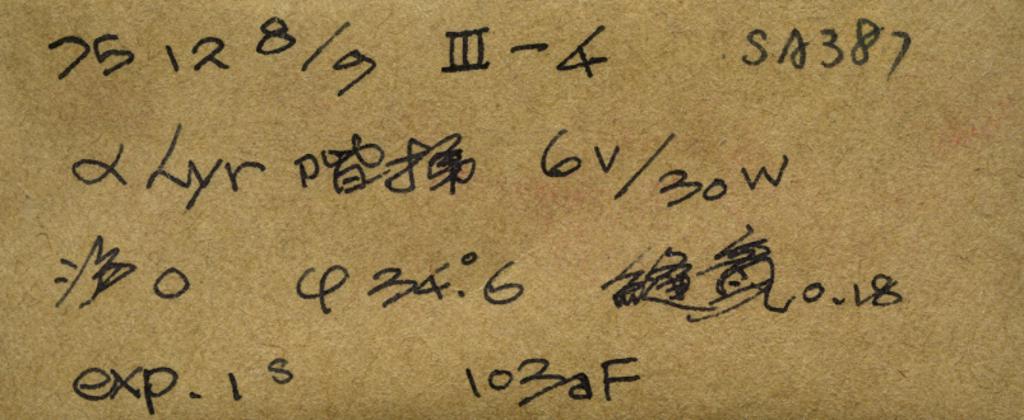 75 12 8/9 III-4 SA387
α Lyr 階梯 6V/30W
沪0 φ34°.6 縫寬0.18
exp. 1ˢ 103aF